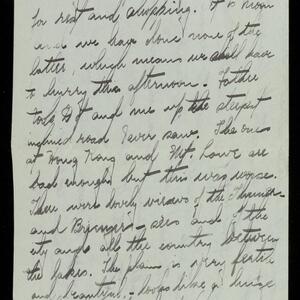 for rest and shopping. It is noon
and we have done none of the
latter, which means we shall have
to hurry this afternoon. Father
took and me up the steepest
inclined road I ever saw. The ones
at Hong Kong and Mt. Lowe are
bad enough but this was worse.
There were lovely views of the Thuner-
and Brienzer-sees and of the
city and all the country between
the lakes. The plain is very fertile
and beautiful, - looks like a huge